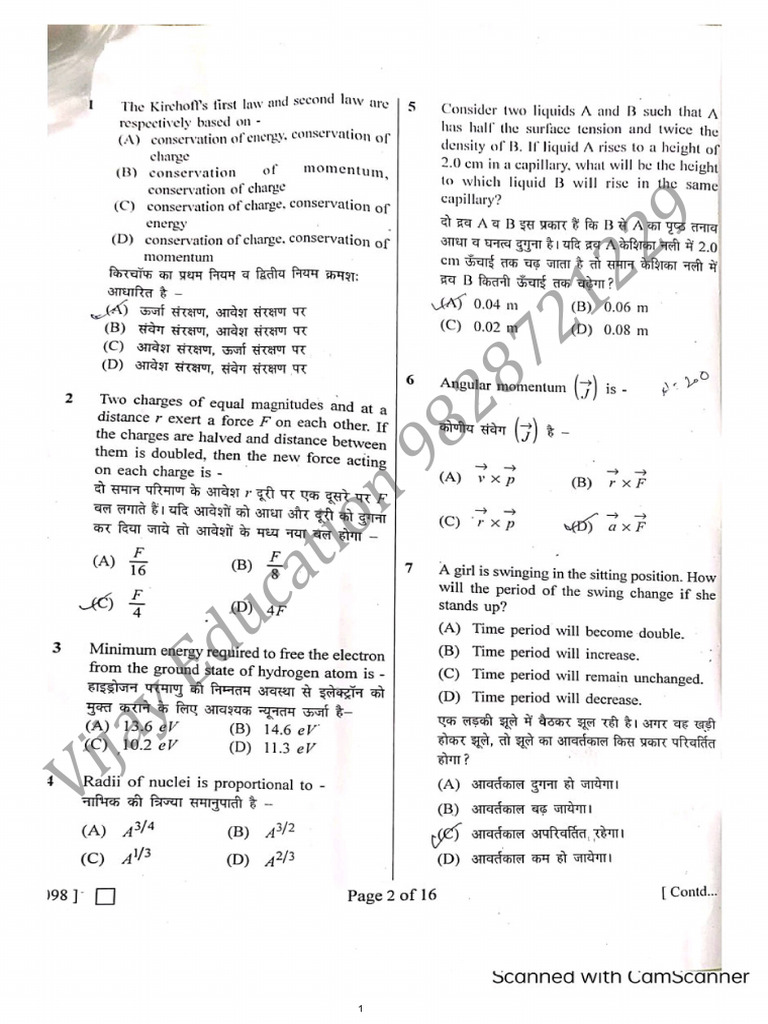 1 The Kirchoff's first law and second law are
respectively based on -
(A) conservation of energy, conservation of
charge
(B) conservation of momentum,
conservation of charge
(C) conservation of charge, conservation of
energy
(D) conservation of charge, conservation of
momentum
किरचॉफ का प्रथम नियम व द्वितीय नियम क्रमशः
आधारित है –
(A) ऊर्जा संरक्षण, आवेश संरक्षण पर
(B) संवेग संरक्षण, आवेश संरक्षण पर
(C) आवेश संरक्षण, ऊर्जा संरक्षण पर
(D) आवेश संरक्षण, संवेग संरक्षण पर
2 Two charges of equal magnitudes and at a
distance r exert a force F on each other. If
the charges are halved and distance between
them is doubled, then the new force acting
on each charge is -
दो समान परिमाण के आवेश r दूरी पर एक दूसरे पर F
बल लगाते हैं। यदि आवेशों को आधा और दूरी को दुगना
कर दिया जाये तो आवेशों के मध्य नया बल होगा –
(A) F/16 (B) F/8
(C) F/4 (D) 4F
3 Minimum energy required to free the electron
from the ground state of hydrogen atom is -
हाइड्रोजन परमाणु की निम्नतम अवस्था से इलेक्ट्रॉन को
मुक्त कराने के लिए आवश्यक न्यूनतम ऊर्जा है–
(A) 13.6 eV (B) 14.6 eV
(C) 10.2 eV (D) 11.3 eV
4 Radii of nuclei is proportional to -
नाभिक की त्रिज्या समानुपाती है –
(A) A^3/4 (B) A^3/2
(C) A^1/3 (D) A^2/3
5 Consider two liquids A and B such that A
has half the surface tension and twice the
density of B. If liquid A rises to a height of
2.0 cm in a capillary, what will be the height
to which liquid B will rise in the same
capillary?
दो द्रव A व B इस प्रकार हैं कि B से A का पृष्ठ तनाव
आधा व घनत्व दुगुना है। यदि द्रव A केशिका नली में 2.0
cm ऊँचाई तक चढ़ जाता है तो समान केशिका नली में
द्रव B कितनी ऊँचाई तक चढ़ेगा?
(A) 0.04 m (B) 0.06 m
(C) 0.02 m (D) 0.08 m
6 Angular momentum (J⃗) is -
कोणीय संवेग (J⃗) है –
(A) v⃗ × p⃗ (B) r⃗ × F⃗
(C) r⃗ × p⃗ (D) a⃗ × F⃗
7 A girl is swinging in the sitting position. How
will the period of the swing change if she
stands up?
(A) Time period will become double.
(B) Time period will increase.
(C) Time period will remain unchanged.
(D) Time period will decrease.
एक लड़की झूले में बैठकर झूल रही है। अगर वह खड़ी
होकर झूले, तो झूले का आवर्तकाल किस प्रकार परिवर्तित
होगा?
(A) आवर्तकाल दुगना हो जायेगा।
(B) आवर्तकाल बढ़ जायेगा।
(C) आवर्तकाल अपरिवर्तित रहेगा।
(D) आवर्तकाल कम हो जायेगा।
098 ] Page 2 of 16 [ Contd...
Vijay Education 9828721229
Scanned with CamScanner
1